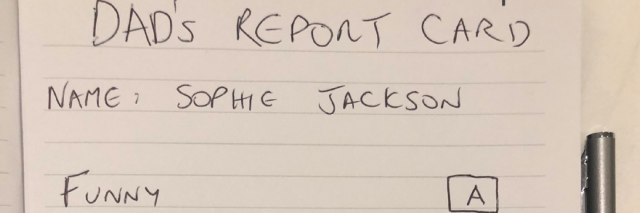 DAD'S REPORT CARD
NAME: SOPHIE JACKSON
FUNNY A